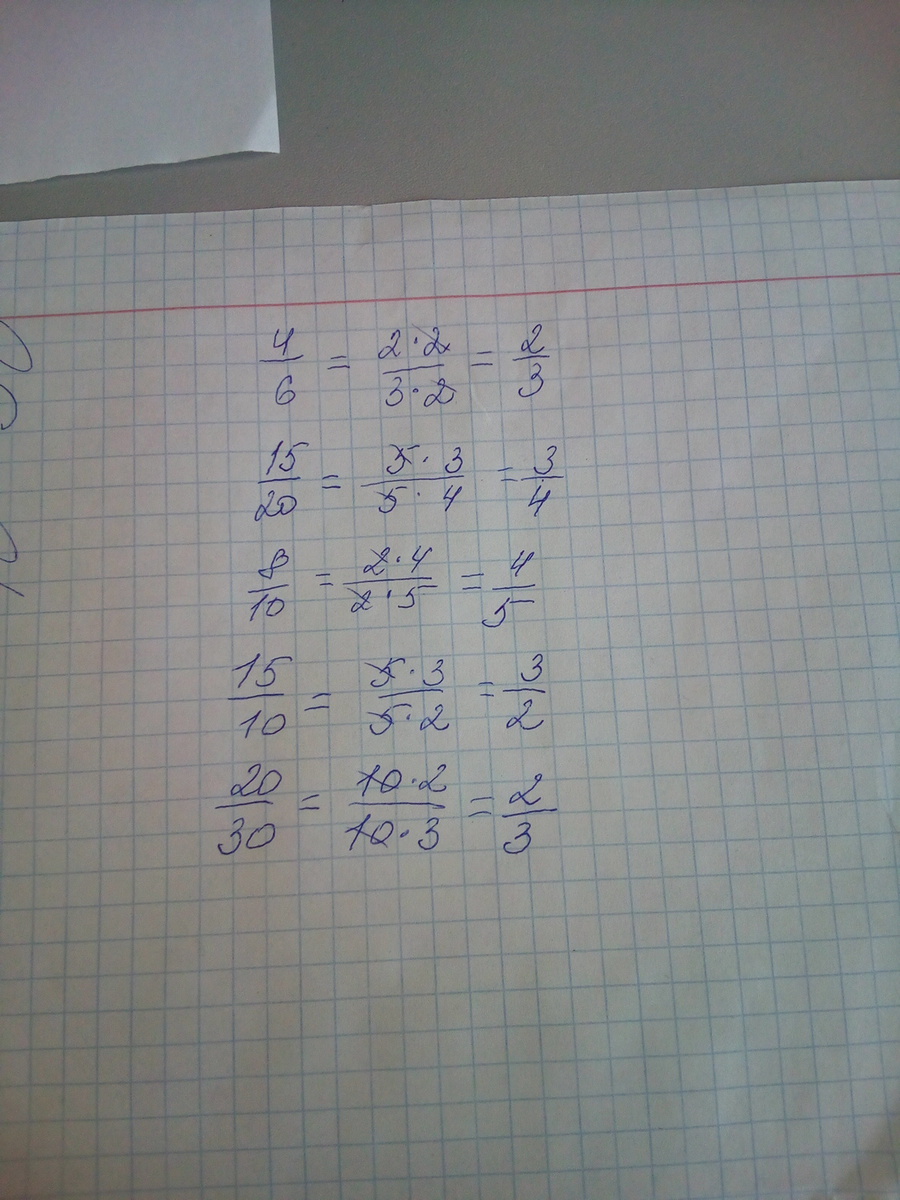 4/6 = 2·2/3·2 = 2/3
15/20 = 5·3/5·4 = 3/4
8/10 = 2·4/2·5 = 4/5
15/10 = 5·3/5·2 = 3/2
20/30 = 10·2/10·3 = 2/3